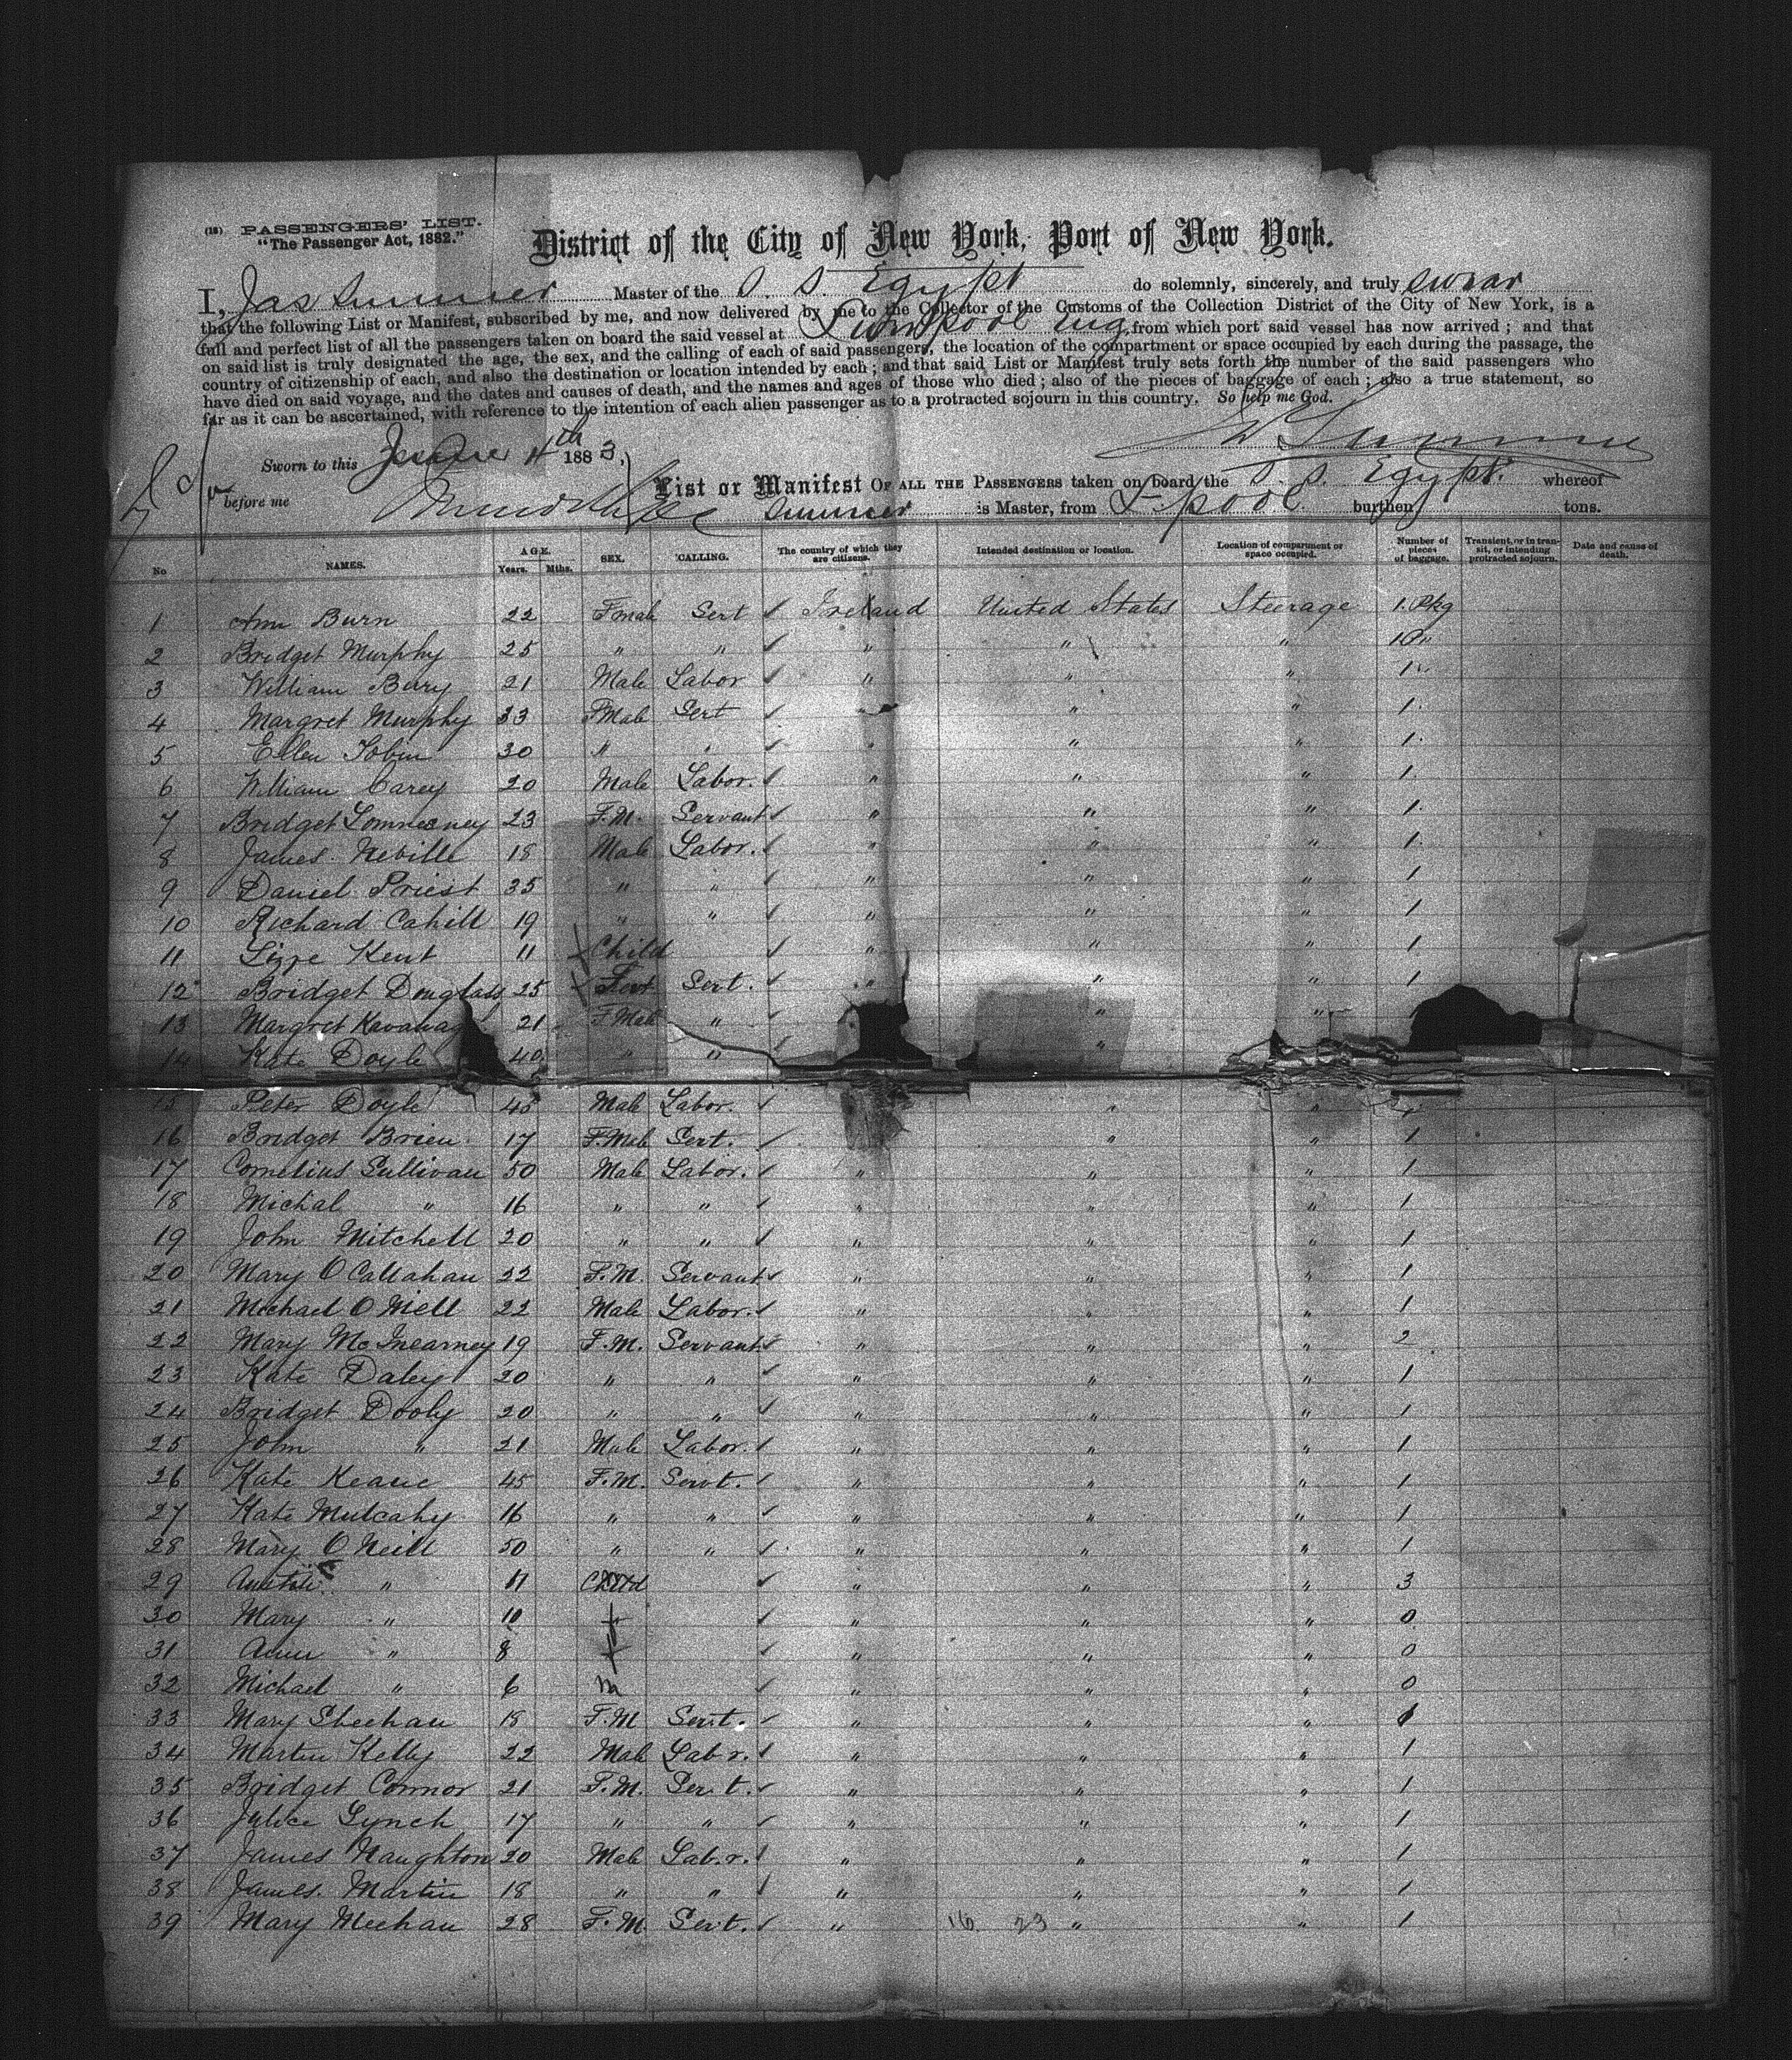 (18) PASSENGERS' LIST.
"The Passenger Act, 1882."
District of the City of New York, Port of New York.
I, Jas Sumner Master of the S. S. Egypt do solemnly, sincerely, and truly swear
that the following List or Manifest, subscribed by me, and now delivered by me to the Collector of the Customs of the Collection District of the City of New York, is a
full and perfect list of all the passengers taken on board the said vessel at Liverpool Eng from which port said vessel has now arrived; and that
on said list is truly designated the age, the sex, and the calling of each of said passengers, the location of the compartment or space occupied by each during the passage, the
country of citizenship of each, and also the destination or location intended by each; and that said List or Manifest truly sets forth the number of the said passengers who
have died on said voyage, and the dates and causes of death, and the names and ages of those who died; also of the pieces of baggage of each; also a true statement, so
far as it can be ascertained, with reference to the intention of each alien passenger as to a protracted sojourn in this country. So help me God.
Sumner
Sworn to this June 4th 1883,
before me
List or Manifest OF ALL THE PASSENGERS taken on board the S. S. Egypt whereof
Sumner is Master, from L-pool burthen tons.
No NAMES. AGE. Years. Mths. SEX. CALLING. The country of which they are citizens. Intended destination or location. Location of compartment or space occupied. Number of pieces of baggage. Transient, or in transit, or intending protracted sojourn. Date and cause of death.
1 Ann Burn 22 Fmale Sert ✓ Ireland United States Steerage 1 Pkg
2 Bridget Murphy 25 " " ✓ " " " 1 "
3 William Barry 21 Male Labor ✓ " " " 1 "
4 Margret Murphy 33 FMale Sert ✓ " " " 1
5 Ellen Tobin 30 " " ✓ " " " 1
6 William Carey 20 Male Labor. ✓ " " " 1
7 Bridget 23 F.M. Servant ✓ " " " 1
8 James Neville 18 Male Labor. ✓ " " " 1
9 Daniel Priest 35 " " ✓ " " " 1
10 Richard Cahill 19 " " ✓ " " " 1
11 Lizze Kent 11 Child ✓ " " " 1
12 Bridget Douglass 25 Sert. ✓ " " " 1
13 Margret Kavanag 21 F Male " ✓ " "
14 Kate Doyle 40 " " ✓ "
15 Peter Doyle 45 Male Labor. ✓ " "
16 Bridget Brien 17 F.Male Sert. ✓ " " 1
17 Cornelius Sullivan 50 Male Labor. ✓ " " " 1
18 Michal " 16 " " ✓ " " " 1
19 John Mitchell 20 " " ✓ " " " 1
20 Mary O Callahan 22 F.M. Servant ✓ " " " 1
21 Michael O Niell 22 Male Labor. ✓ " " " 1
22 Mary McInearney 19 F.M. Servant ✓ " " " 2
23 Kate Daley 20 " " ✓ " " " 1
24 Bridget Dooly 20 " " ✓ " " " 1
25 John " 21 Male Labor. ✓ " " " 1
26 Kate Keane 45 F.M. Servt. ✓ " " " 1
27 Kate Mulcahy 16 " " ✓ " " " 1
28 Mary O Neill 50 " " ✓ " " " 1
29 " 11 Child ✓ " " " 3
30 Mary " 10 f ✓ " " " 0
31 Ann " 8 f ✓ " " " 0
32 Michael " 6 m ✓ " " " 0
33 Mary Sheehan 18 F.M Servt. ✓ " " " 1
34 Martin Kelly 22 Male Labr. ✓ " " " 1
35 Bridget Connor 21 F.M. Servt. ✓ " " " 1
36 Julice Lynch 17 " " ✓ " " " 1
37 James Naughton 20 Male Labr. ✓ " " " 1
38 James Martin 18 " " ✓ " " " 1
39 Mary Meehan 28 F.M. Servt. ✓ " 16 23 " " 1